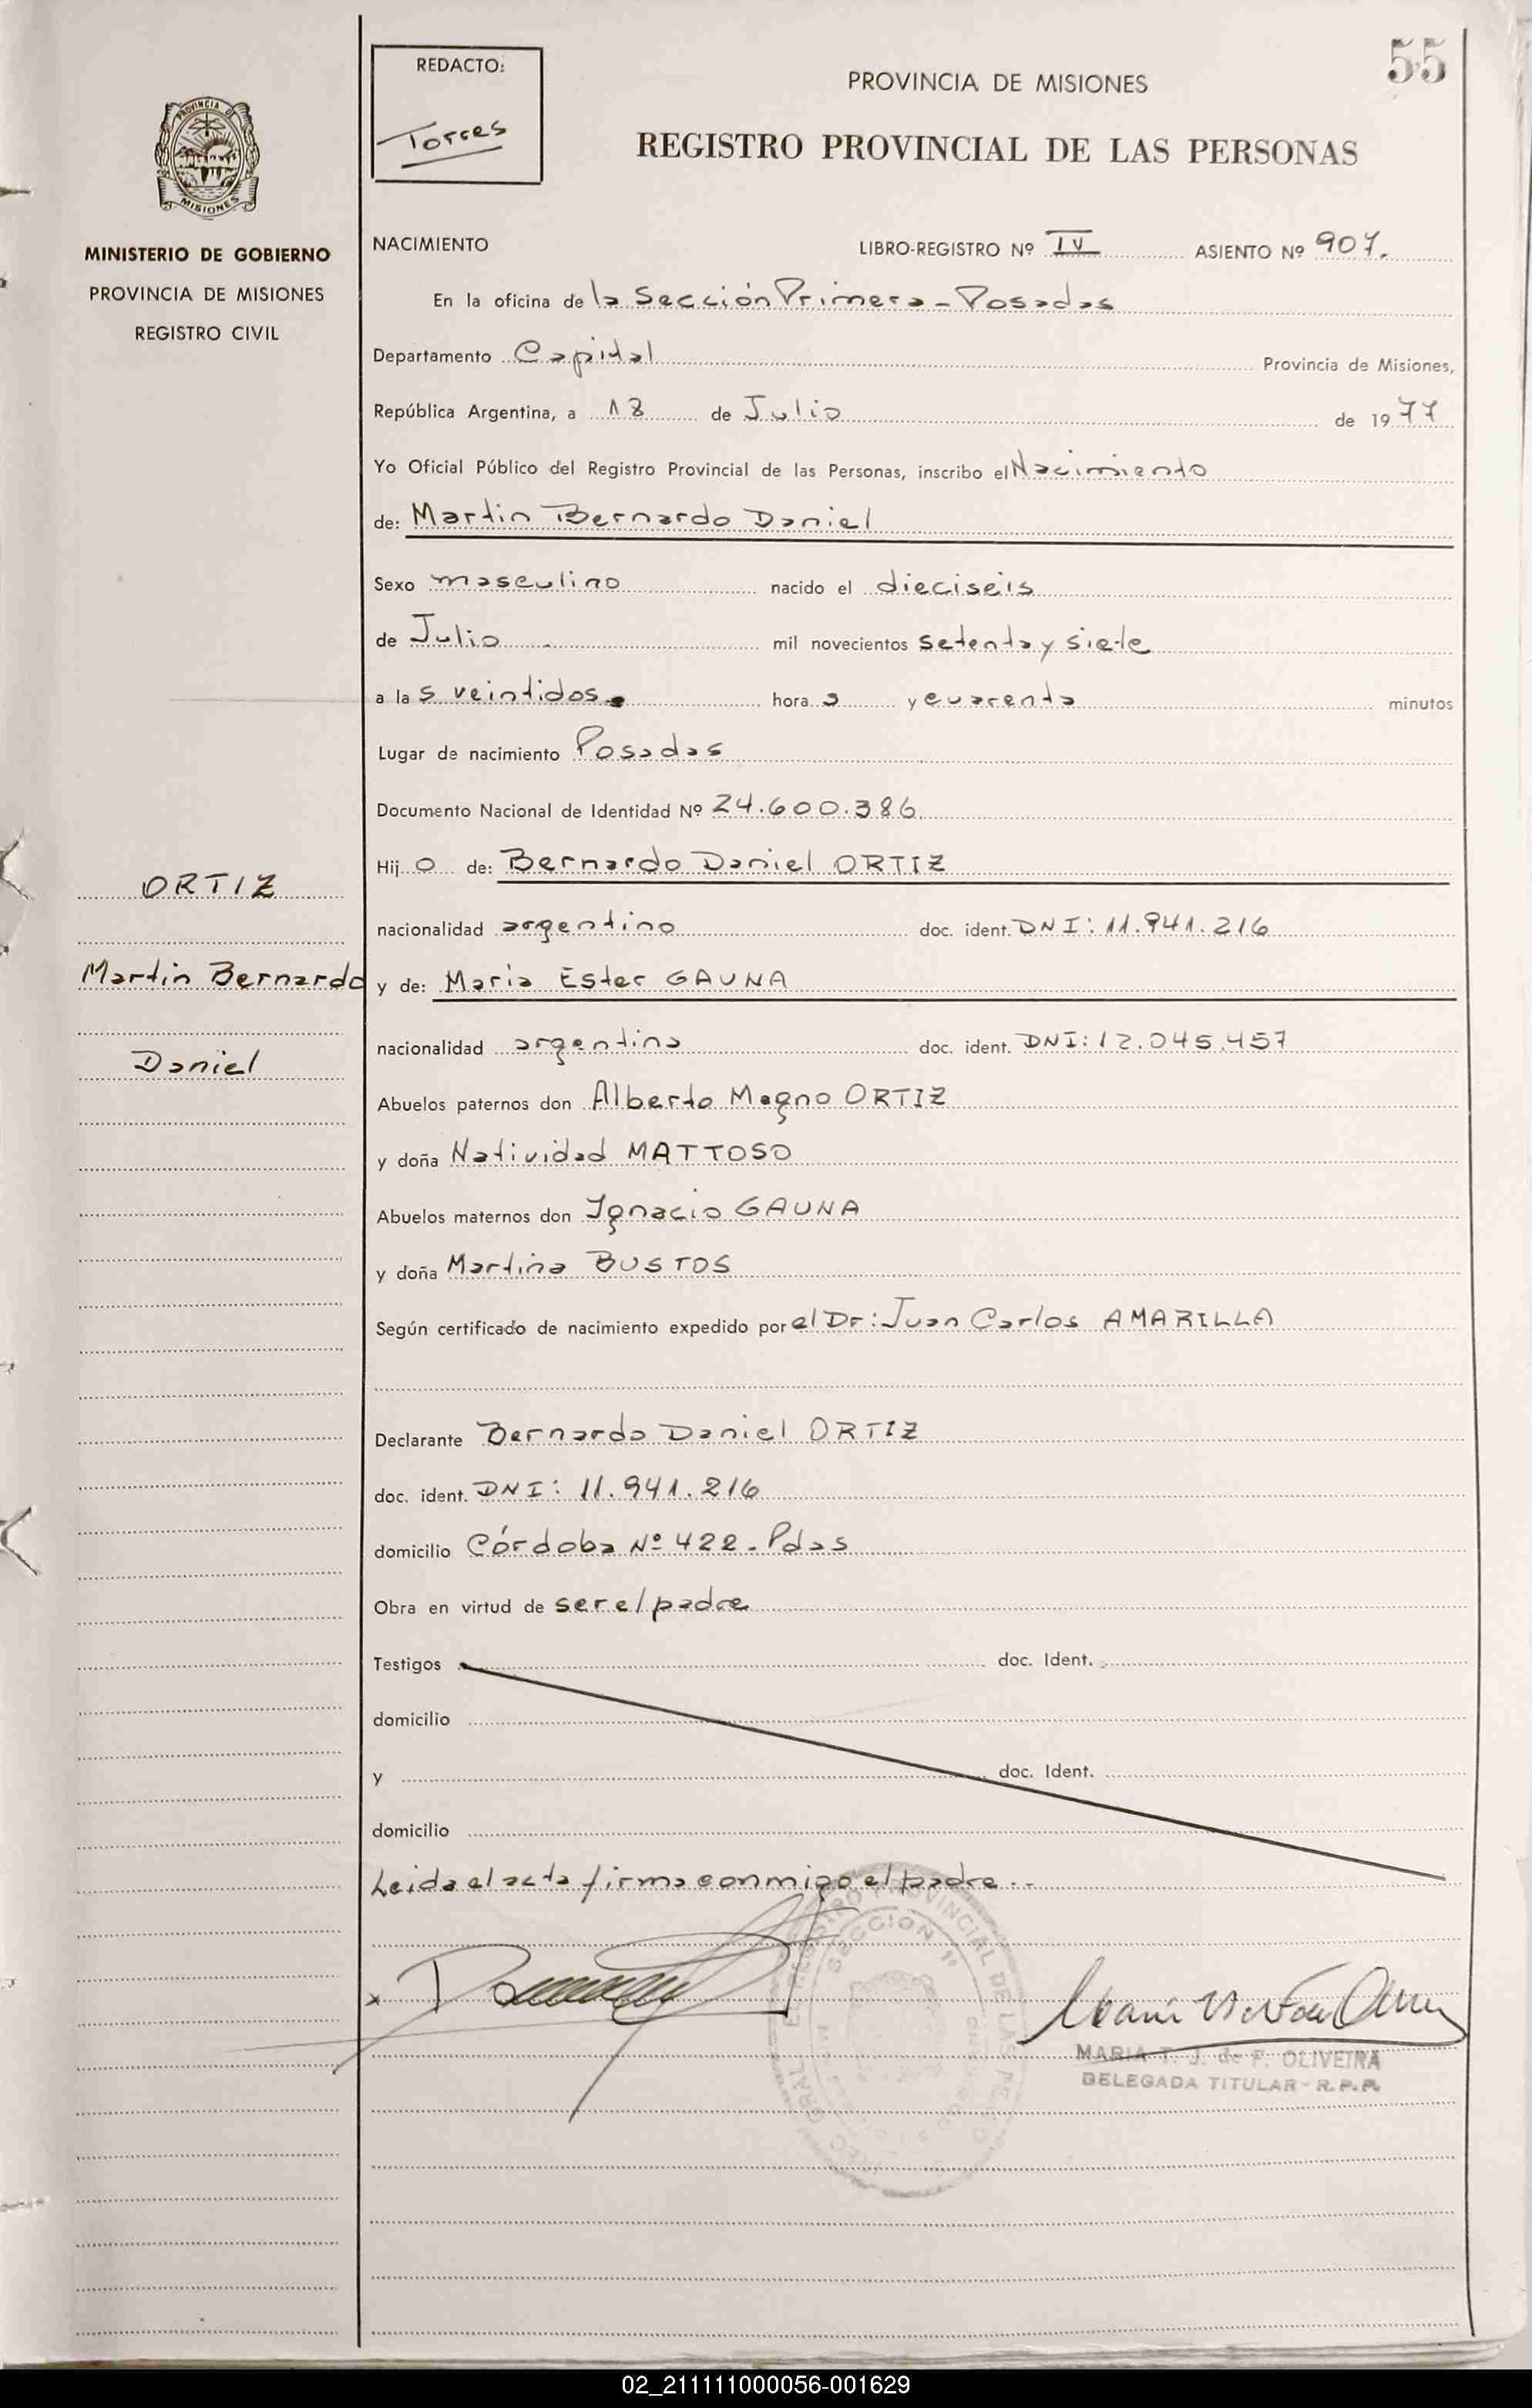 55
REDACTO:
Torres
PROVINCIA DE MISIONES
REGISTRO PROVINCIAL DE LAS PERSONAS
PROVINCIA DE
MISIONES
MINISTERIO DE GOBIERNO
PROVINCIA DE MISIONES
REGISTRO CIVIL
NACIMIENTO LIBRO-REGISTRO Nº IV ASIENTO Nº 907.
En la oficina de la Sección Primera - Posadas
Departamento Capital Provincia de Misiones,
República Argentina, a 18 de Julio de 1977
Yo Oficial Público del Registro Provincial de las Personas, inscribo el Nacimiento
de: Martin Bernardo Daniel
Sexo masculino nacido el dieciseis
de Julio mil novecientos setenta y siete
a las veintidos hora s y cuarenta minutos
Lugar de nacimiento Posadas
Documento Nacional de Identidad Nº 24.600.386
Hijo de: Bernardo Daniel ORTIZ
nacionalidad argentino doc. ident. DNI: 11.941.216
y de: Maria Ester GAUNA
nacionalidad argentina doc. ident. DNI: 12.045.457
Abuelos paternos don Alberto Magno ORTIZ
y doña Natividad MATTOSO
Abuelos maternos don Ignacio GAUNA
y doña Martina BUSTOS
Según certificado de nacimiento expedido por el Dr: Juan Carlos AMARILLA
Declarante Bernardo Daniel ORTIZ
doc. ident. DNI: 11.941.216
domicilio Córdoba Nº 422 - Pdas
Obra en virtud de ser el padre
Testigos doc. Ident.
domicilio
y doc. Ident.
domicilio
Leida el acta firma conmigo el padre..
ORTIZ
Martin Bernardo
Daniel
REGISTRO PROVINCIAL DE LAS
SECCION 1ª
MARIA T. J. de F. OLIVEIRA
DELEGADA TITULAR - R.P.P.
02_211111000056-001629